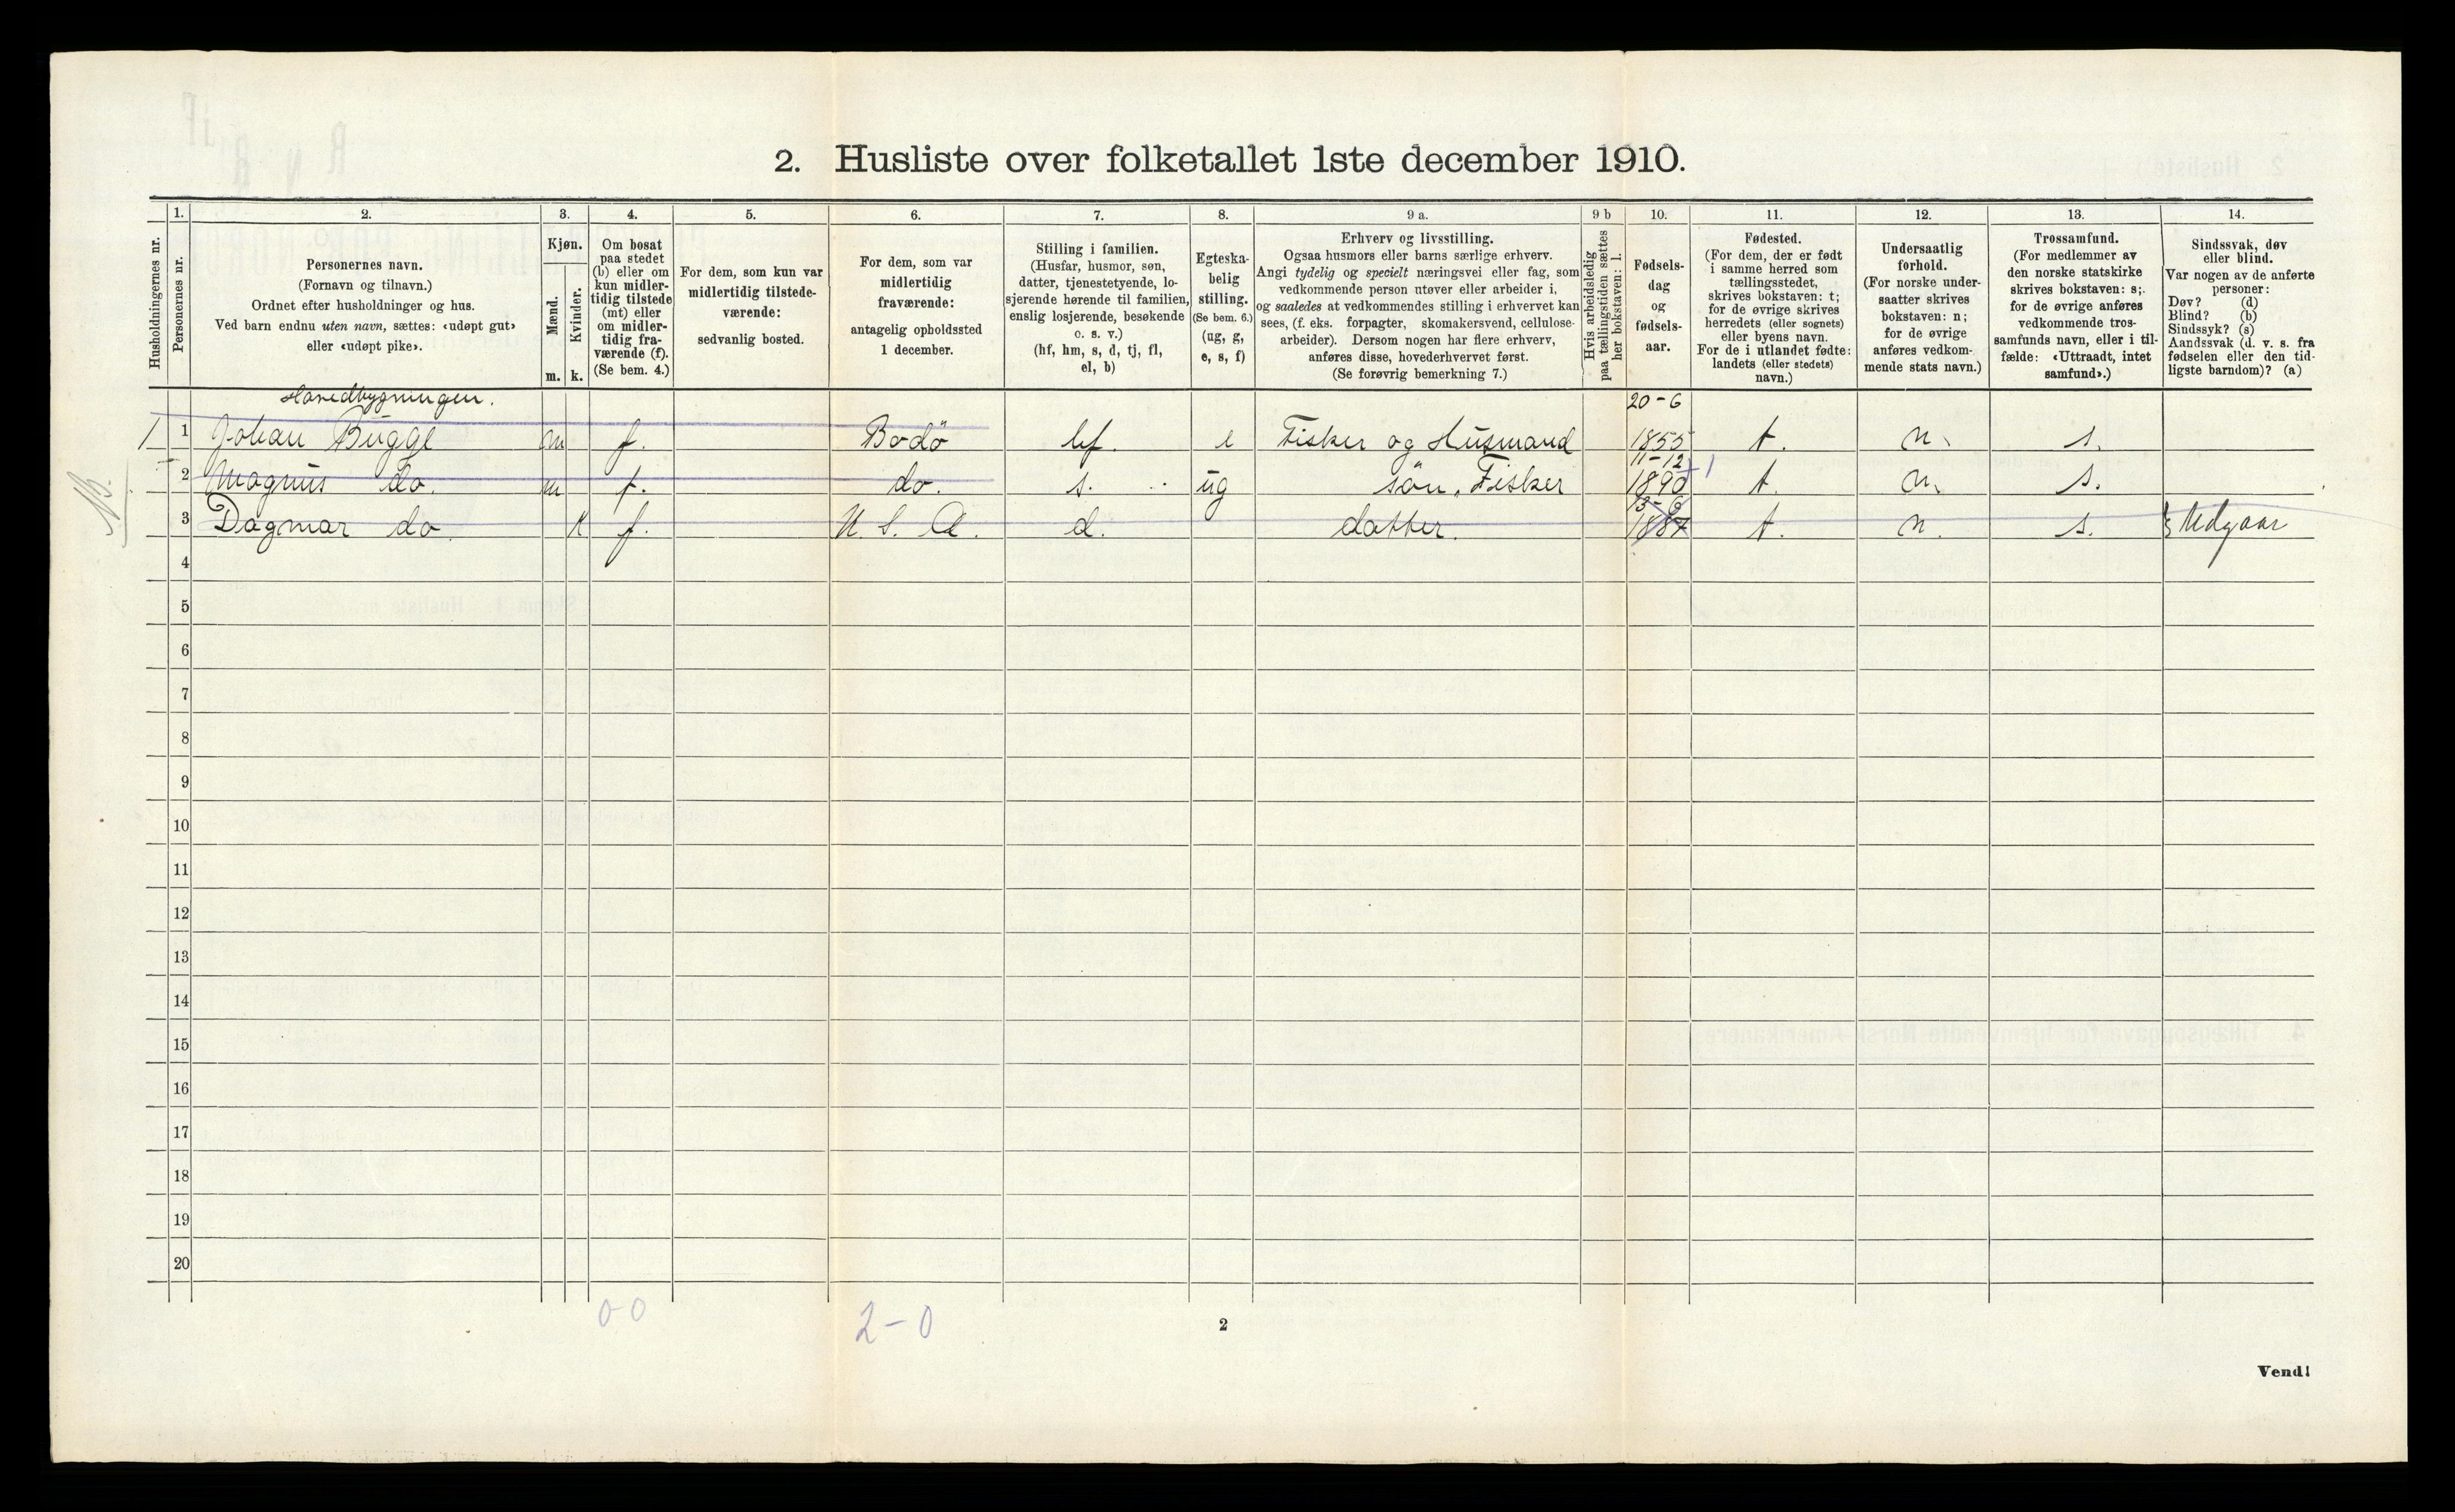 2. Husliste over folketallet 1ste december 1910.
Husholdningernes nr.
1.
Personernes nr.
2.
Personernes navn.
(Fornavn og tilnavn.)
Ordnet efter husholdninger og hus.
Ved barn endnu uten navn, sættes: «udøpt gut»
eller «udøpt pike».
3.
Kjøn.
Mænd.
Kvinder.
m. k.
4.
Om bosat
paa stedet
(b) eller om
kun midler-
tidig tilstede
(mt) eller
om midler-
tidig fra-
værende (f).
(Se bem. 4.)
5.
For dem, som kun var
midlertidig tilstede-
værende:
sedvanlig bosted.
6.
For dem, som var
midlertidig
fraværende:
antagelig opholdssted
1 december.
7.
Stilling i familien.
(Husfar, husmor, søn,
datter, tjenestetyende, lo-
sjerende hørende til familien,
enslig losjerende, besøkende
o. s. v.)
(hf, hm, s, d, tj, fl,
el, b)
8.
Egteska-
belig
stilling.
(Se bem. 6.)
(ug, g,
e, s, f)
9 a.
Erhverv og livsstilling.
Ogsaa husmors eller barns særlige erhverv.
Angi tydelig og specielt næringsvei eller fag, som
vedkommende person utøver eller arbeider i,
og saaledes at vedkommendes stilling i erhvervet kan
sees, (f. eks. forpagter, skomakersvend, cellulose-
arbeider). Dersom nogen har flere erhverv,
anføres disse, hovederhvervet først.
(Se forøvrig bemerkning 7.)
9 b
Hvis arbeidsledig
paa tællingstiden sættes
her bokstaven: l.
10.
Fødsels-
dag
og
fødsels-
aar.
11.
Fødested.
(For dem, der er født
i samme herred som
tællingsstedet,
skrives bokstaven: t;
for de øvrige skrives
herredets (eller sognets)
eller byens navn.
For de i utlandet fødte:
landets (eller stedets)
navn.)
12.
Undersaatlig
forhold.
(For norske under-
saatter skrives
bokstaven: n;
for de øvrige
anføres vedkom-
mende stats navn.)
13.
Trossamfund.
(For medlemmer av
den norske statskirke
skrives bokstaven: s;
for de øvrige anføres
vedkommende tros-
samfunds navn, eller i til-
fælde: «Uttraadt, intet
samfund».)
14.
Sindssvak, døv
eller blind.
Var nogen av de anførte
personer:
Døv? (d)
Blind? (b)
Sindssyk? (s)
Aandssvak (d. v. s. fra
fødselen eller den tid-
ligste barndom)? (a)
Hovedbygningen. 20-6
1 1 Johan Bugge m f. Bodö hf. e Fisker og Husmand 1855 t. n. s.
11-12
2 Magnus do. m f. do. s. ug sön, Fisker 1890 t. n. s.
13-6
3 Dagmar do. k f. U. S. A. d. datter. 1887 t. n. s. Udgaar
NB.
4
5
6
7
8
9
10
11
12
13
14
15
16
17
18
19
20
0-0 2-0
2
Vend!